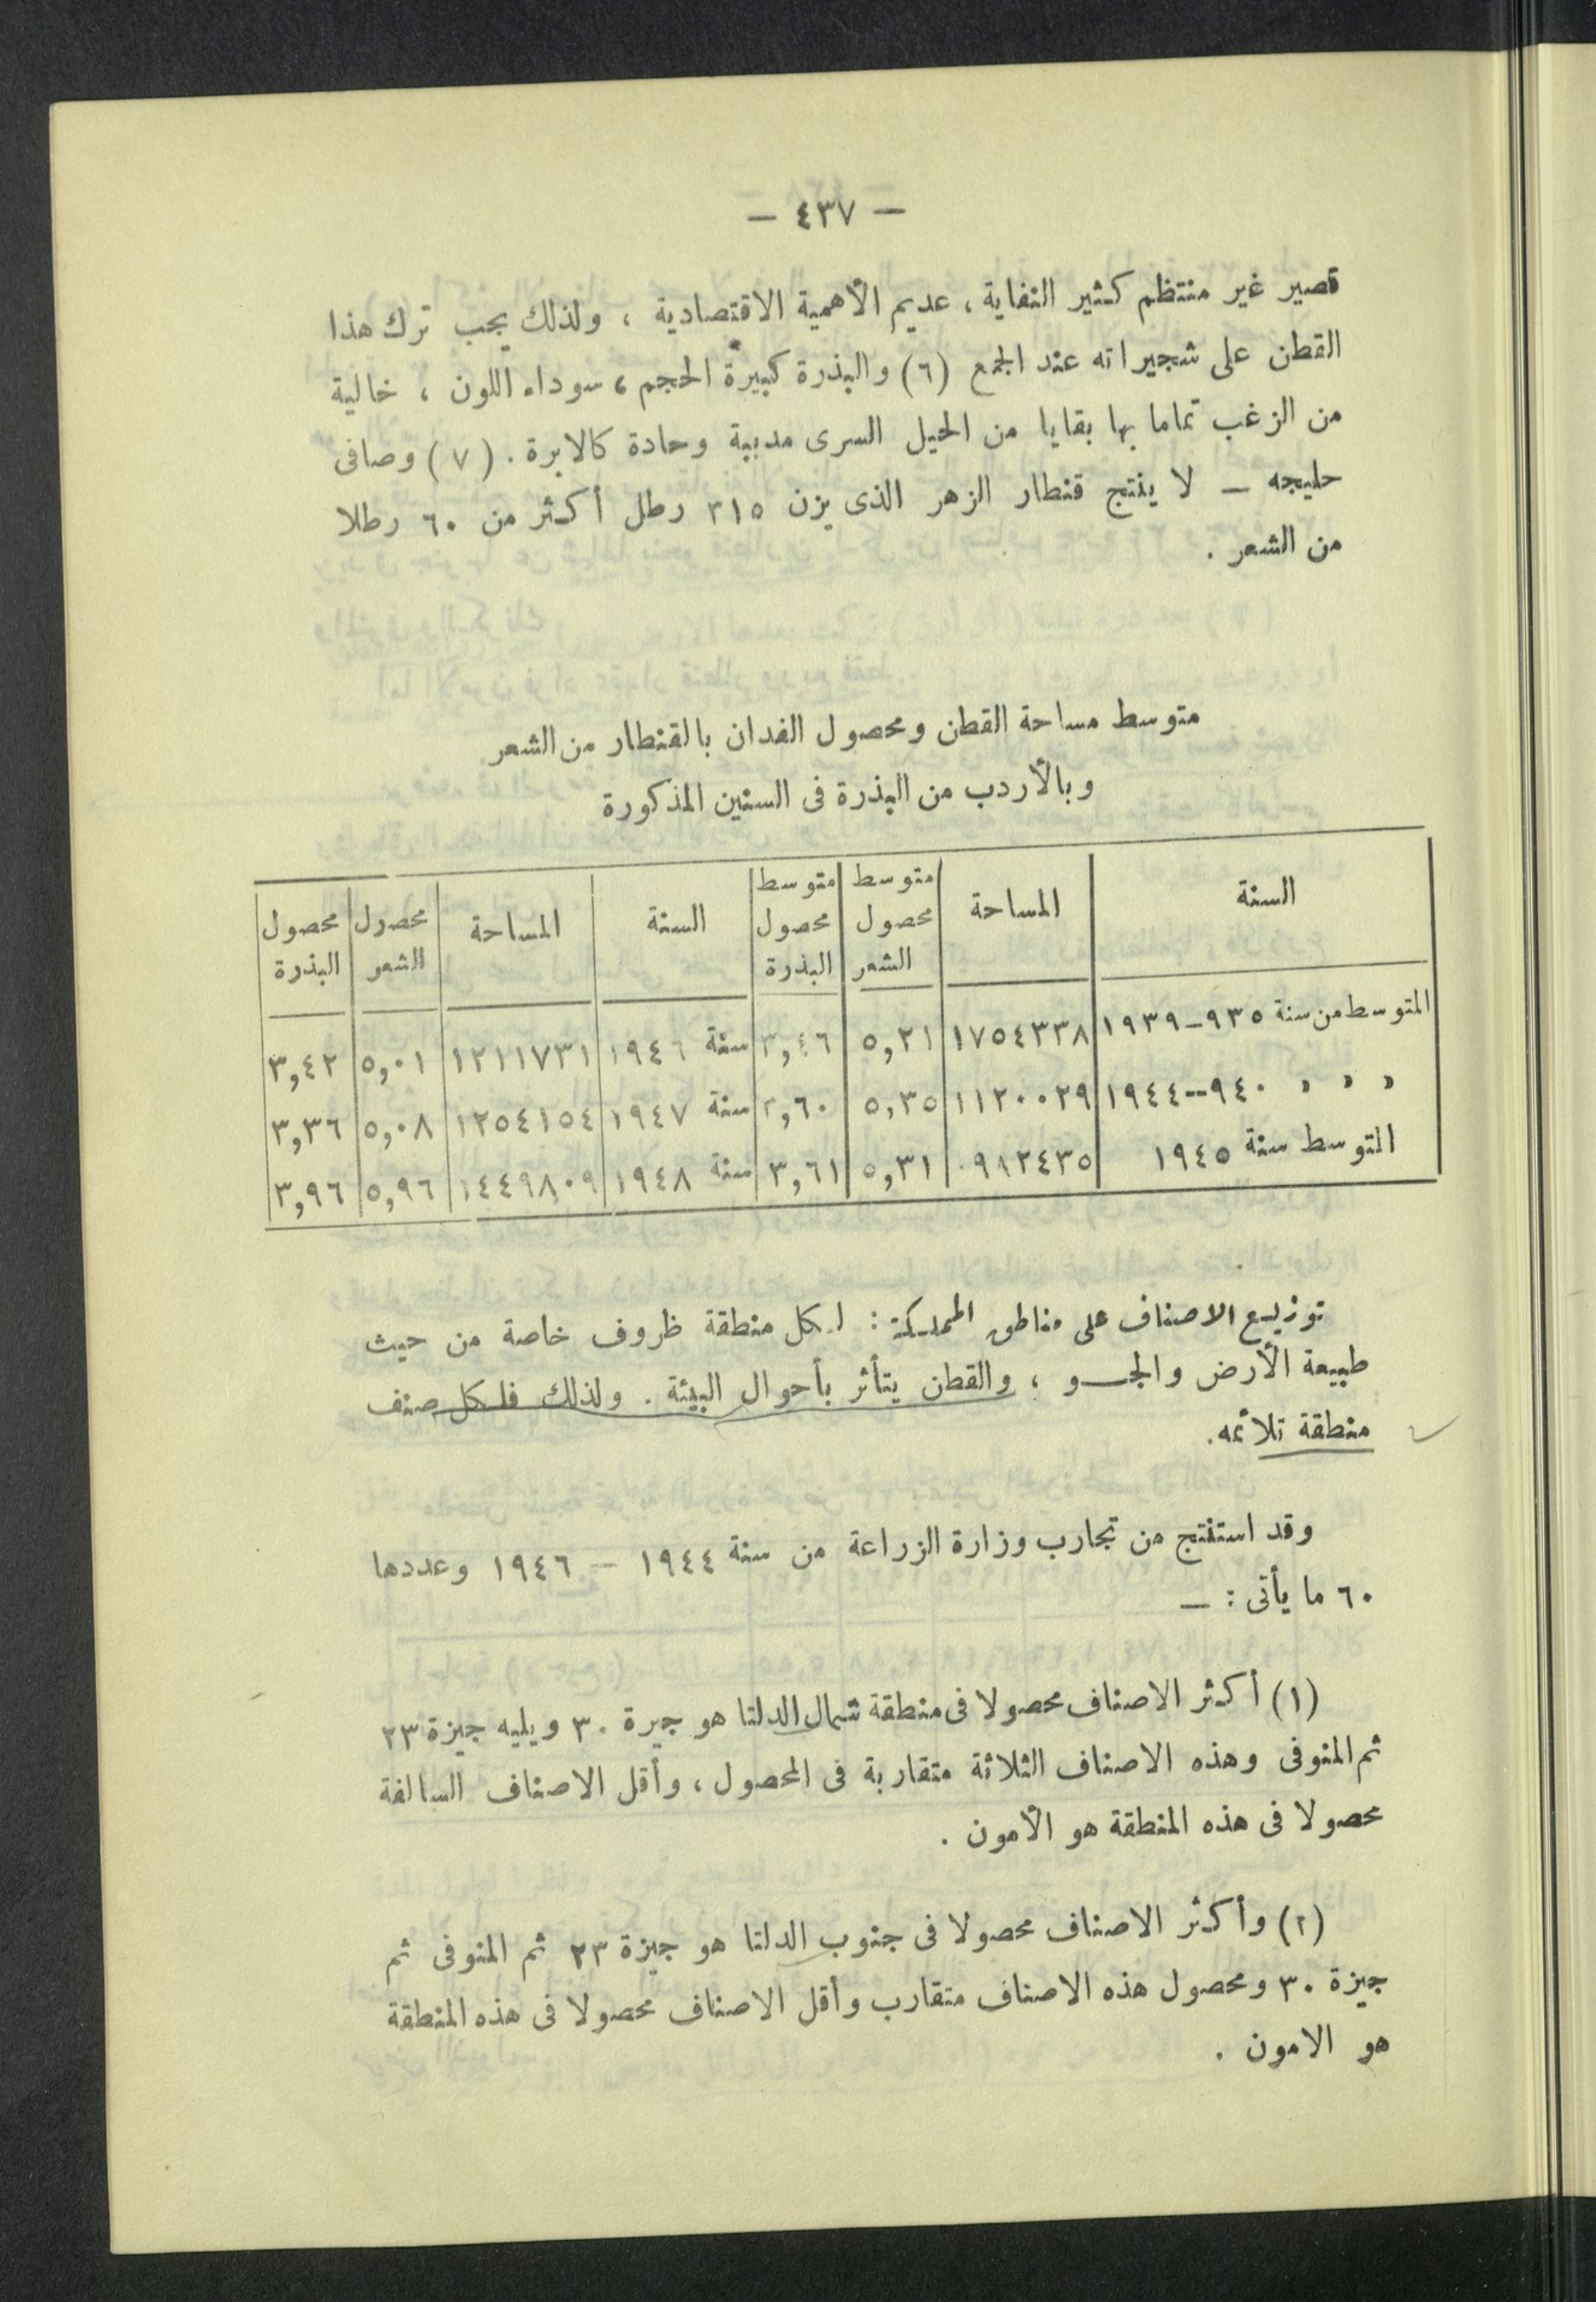 — ٤٣٧ —
قصير غير منتظم كثير النفاية، عديم الأهمية الاقتصادية ، ولذلك يجب ترك هذا
القطن على شجيراته عند الجمع (٦) والبذرة كبيرة الحجم، سوداء اللون ، خالية
من الزغب تماما بها بقايا من الحبل السرى مدببة وحادة كالابرة . (٧) وصافى
حليجه — لا ينتج قنطار الزهر الذى يزن ٣١٥ رطل أكثر من ٦٠ رطلا
من الشعر .
متوسط مساحة القطن ومحصول الفدان بالقنطار من الشعر
وبالأردب من البذرة فى السنين المذكورة
السنة | المساحة | متوسط محصول الشعر | متوسط محصول البذرة | السنة | المساحة | محصول الشعر | محصول البذرة
المتوسط من سنة ٩٣٥–١٩٣٩ | ١٧٥٤٣٣٨ | ٥,٢١ | ٣,٤٦ | سنة ١٩٤٦ | ١٢١١٧٣١ | ٥,٠١ | ٣,٤٢
» » » ٩٤٠–-١٩٤٤ | ١١٢٠٠٢٩ | ٥,٣٥ | ٣,٦٠ | سنة ١٩٤٧ | ١٢٥٤١٥٤ | ٥,٠٨ | ٣,٣٦
المتوسط سنة ١٩٤٥ | ٠٩٨٢٤٣٥ | ٥,٣١ | ٣,٦١ | سنة ١٩٤٨ | ١٤٤٩٨٠٩ | ٥,٩٦ | ٣,٩٦
توزيع الاصناف على مناطق المملكة : لكل منطقة ظروف خاصة من حيث
طبيعة الأرض والجو ، والقطن يتأثر بأحوال البيئة . ولذلك فلكل صنف
منطقة تلائمه.
وقد استنتج من تجارب وزارة الزراعة من سنة ١٩٤٤ — ١٩٤٦ وعددها
٦٠ ما يأتى : —
(١) أكثر الاصناف محصولا فى منطقة شمال الدلتا هو جيرة ٣٠ ويليه جيزة ٢٣
ثم المنوفى وهذه الاصناف الثلاثة متقاربة فى المحصول ، وأقل الاصناف السالفة
محصولا فى هذه المنطقة هو الأمون .
(٢) وأكثر الاصناف محصولا فى جنوب الدلتا هو جيزة ٢٣ ثم المنوفى ثم
جيزة ٣٠ ومحصول هذه الاصناف متقارب وأقل الاصناف محصولا فى هذه المنطقة
هو الامون .